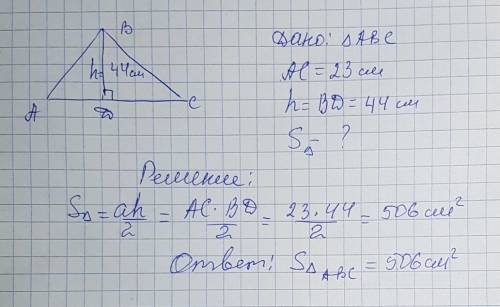 B
h = 44 см
A
D
C
Дано: △ABC
AC = 23 см
h = BD = 44 см
S△ - ?
Решение:
S△ = ah/2 = AC · BD/2 = 23 · 44/2 = 506 см²
Ответ: S△ABC = 506 см²